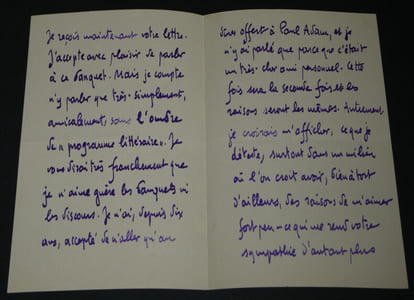 Je reçois maintenant votre lettre.
J'accepte avec plaisir de parler
à ce banquet. Mais je compte
n'y parler que très simplement,
amicalement, sans l'ombre
de « programme littéraire ». Je
vous dirai très franchement que
je n'aime guère les banquets ni
les discours. Je n'ai, depuis dix
ans, accepté de n'aller qu'au
dîner offert à Paul Adam, et je
n'y ai parlé que parce que c'était
un très cher ami personnel. Cette
fois sera la seconde fois et les
raisons seront les mêmes. Autrement
je croirais m'afficher, ce que je
déteste, surtout dans un milieu
où l'on croit avoir, bien à tort
d'ailleurs, des raisons de m'aimer
fort peu – ce qui me rend votre
sympathie d'autant plus